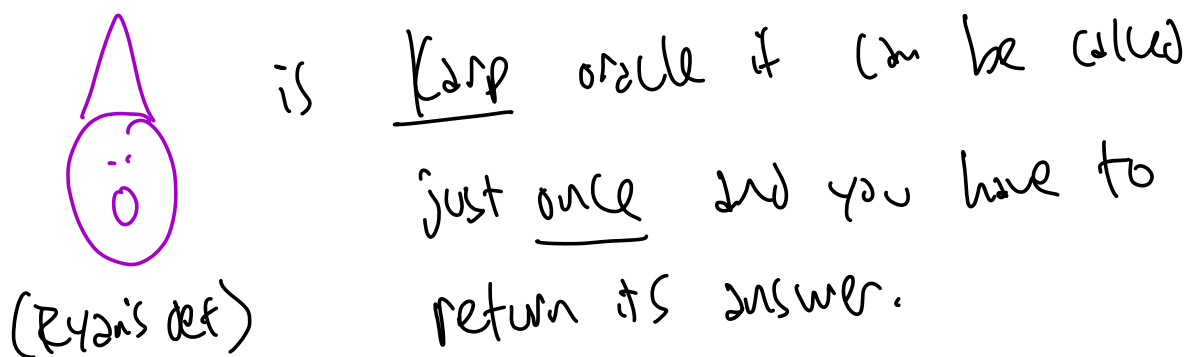 is Karp oracle if can be called
just once and you have to
return its answer.
(Ryan's def)